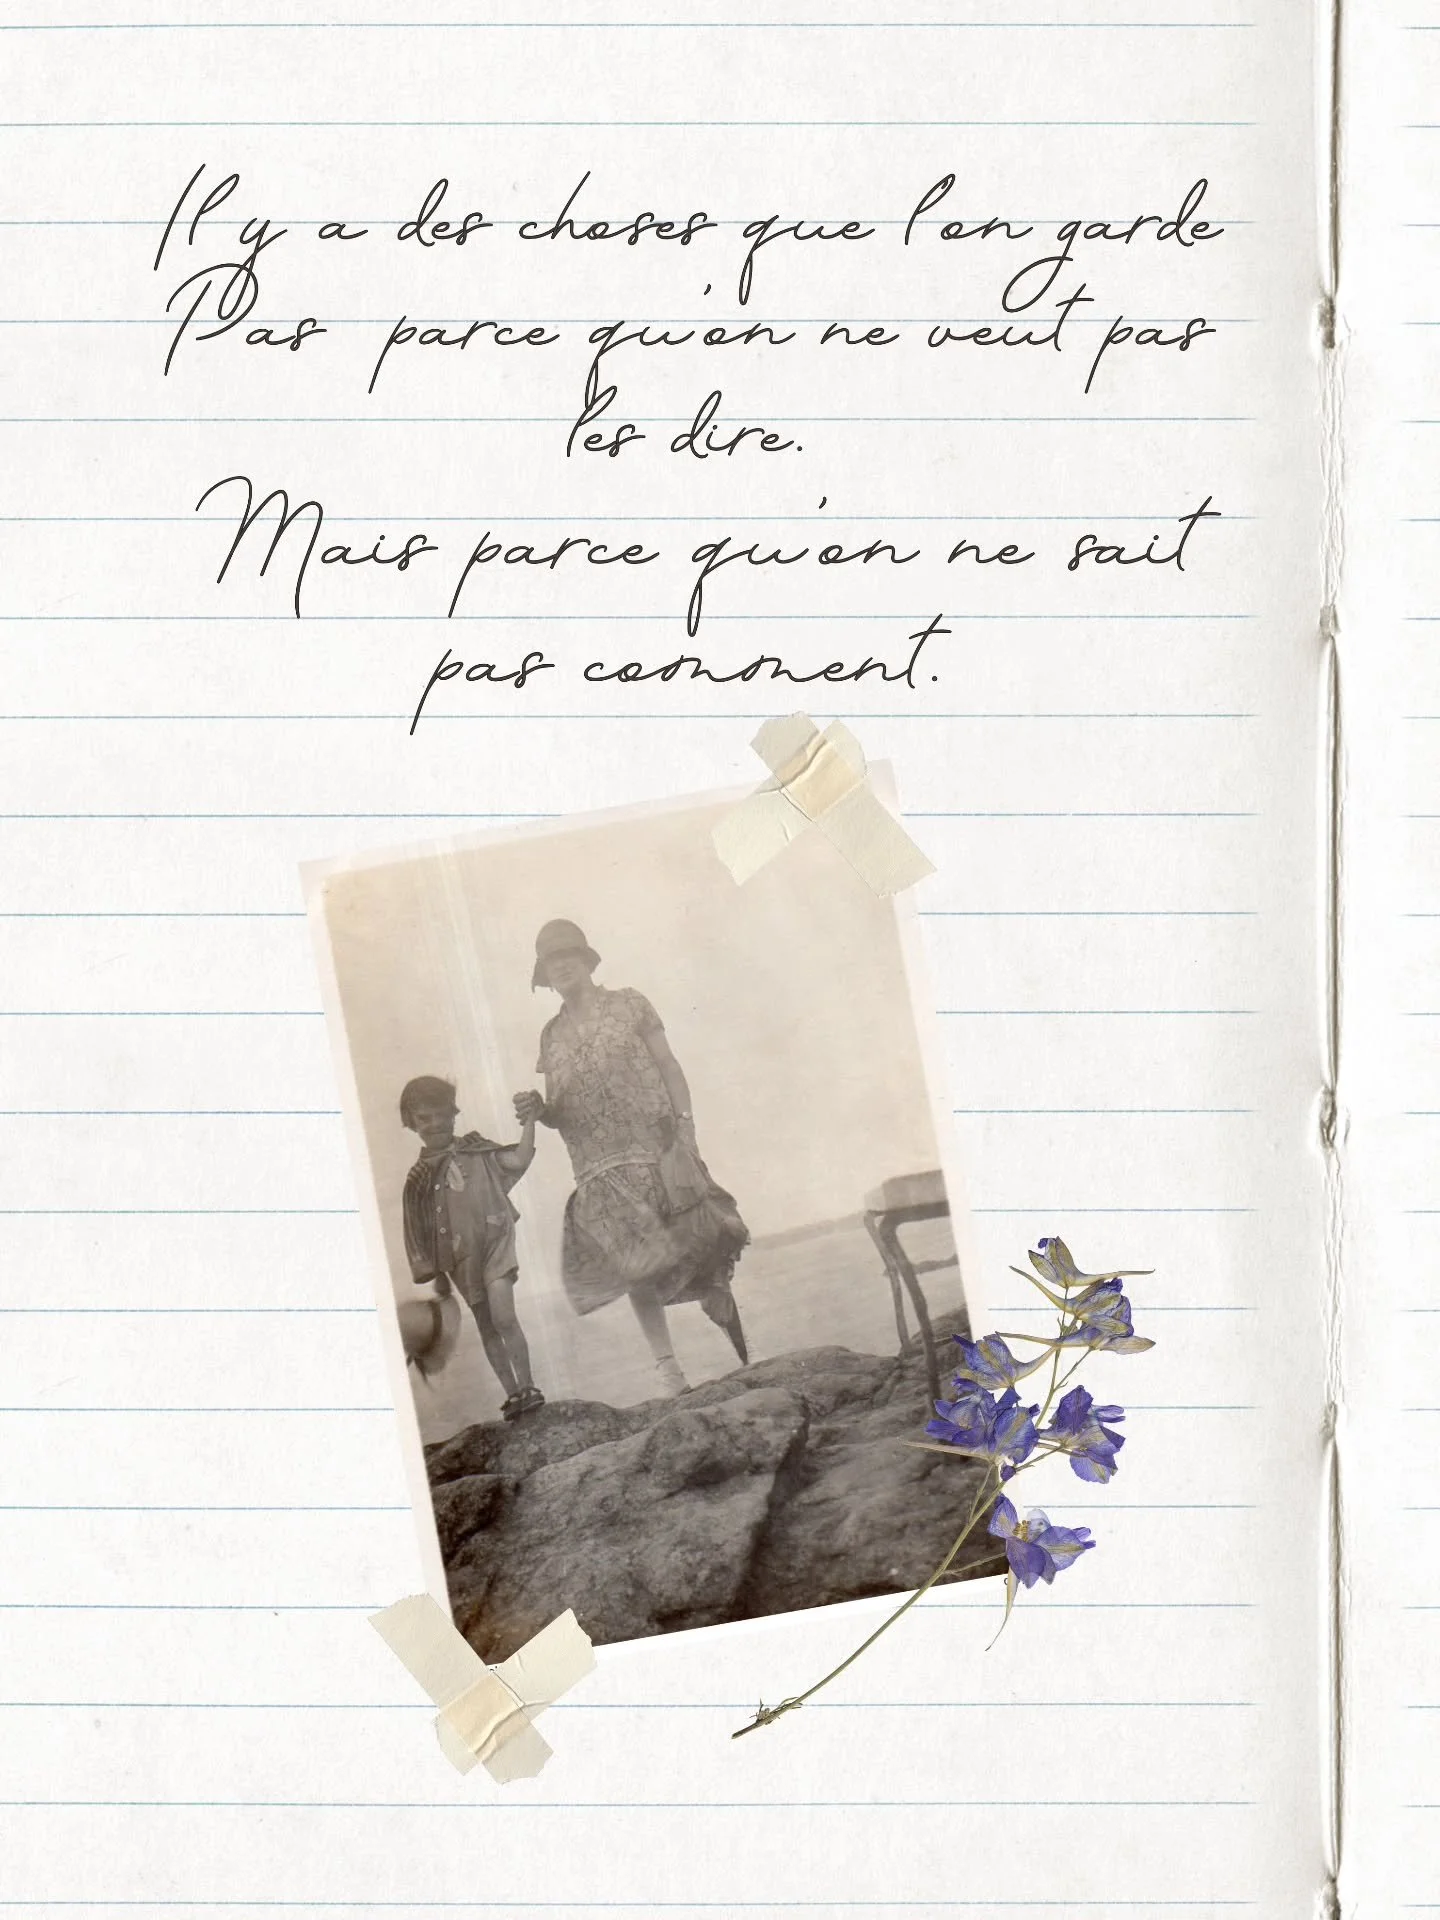 Il y a des choses que l'on garde
Pas parce qu'on ne veut pas
les dire.
Mais parce qu'on ne sait
pas comment.